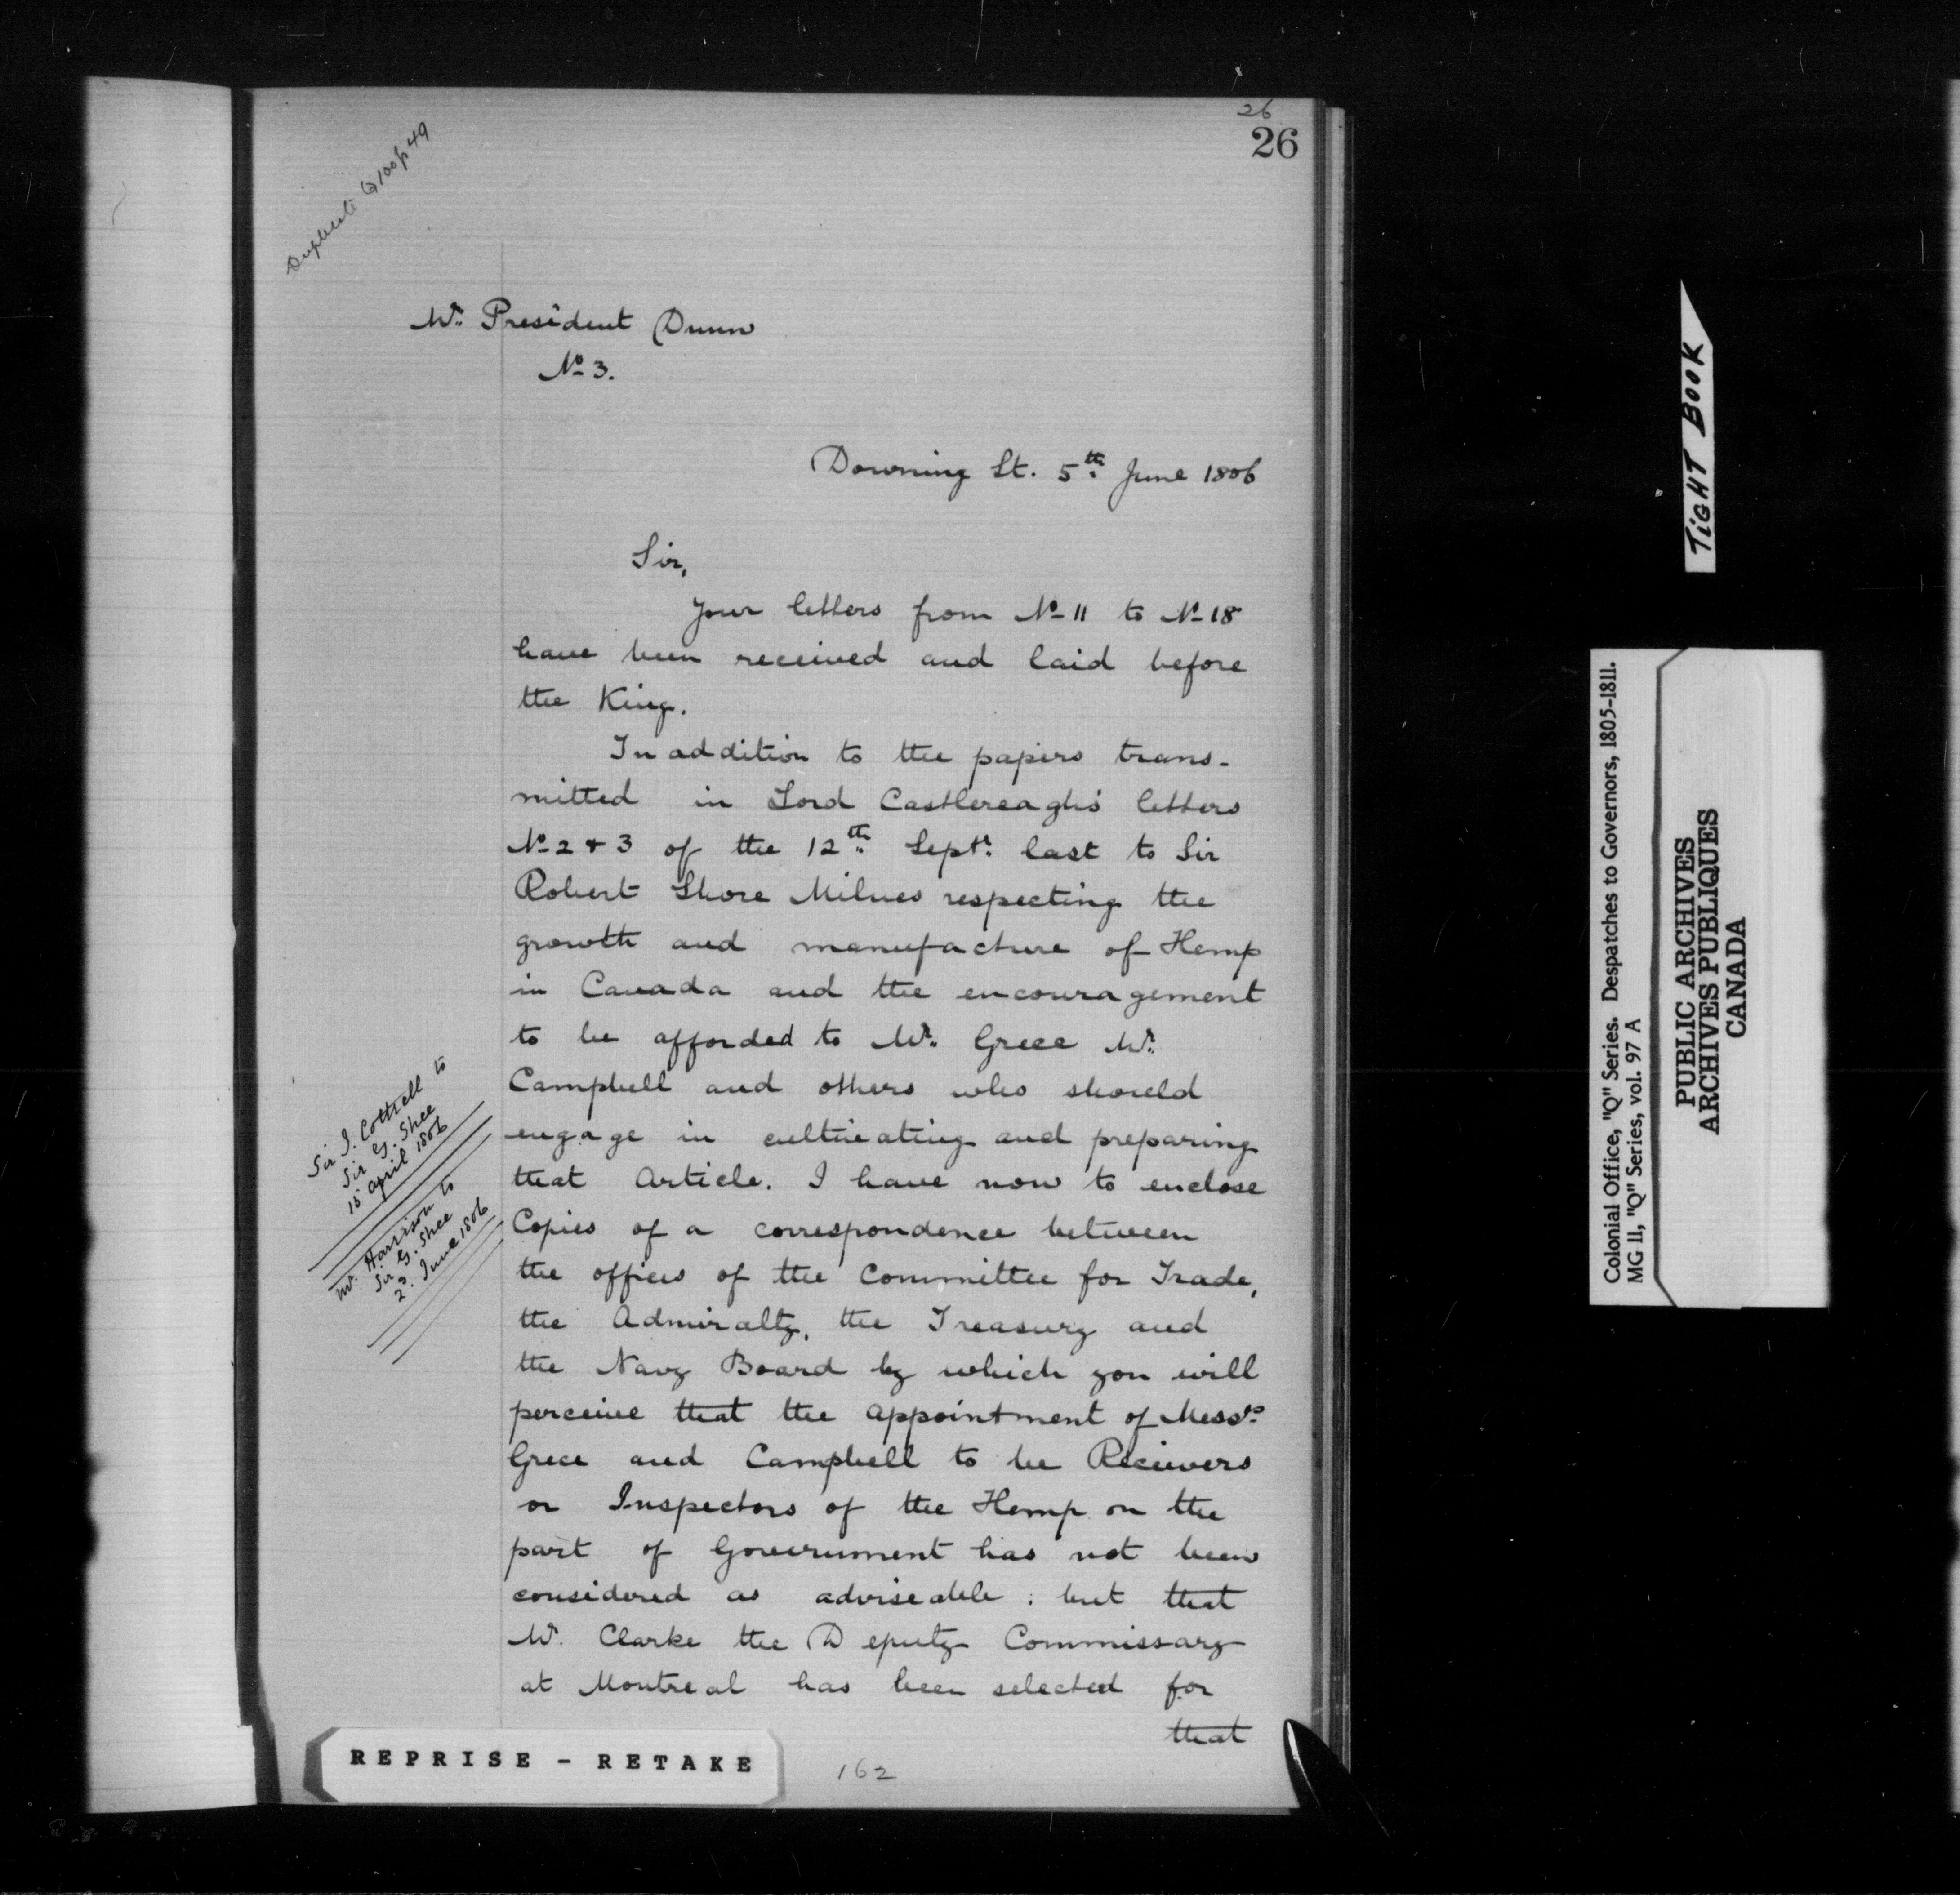 26
26
Duplicate Q 100 p 49
Mr. President Dunn
No 3.
Downing St. 5th June 1806
Sir,
Your letters from No 11 to No 18
have been received and laid before
the King.
In addition to the papers trans-
mitted in Lord Castlereagh's letters
No 2 & 3 of the 12th Sept. last to Sir
Robert Shore Milnes respecting the
growth and manufacture of Hemp
in Canada and the encouragement
to be afforded to Mr. Grece Mr.
Campbell and others who should
engage in cultivating and preparing
that Article. I have now to enclose
Copies of a correspondence between
the offices of the Committee for Trade,
the Admiralty, the Treasury and
the Navy Board by which you will
perceive that the appointment of Messrs.
Grece and Campbell to be Receivers
or Inspectors of the Hemp on the
part of Government has not been
considered as adviseable : but that
Mr. Clarke the Deputy Commissary
at Montreal has been selected for
that
Sir I. Cottrell to
Sir G. Shee
15 April 1806
Mr. Harrison to
Sir G. Shee
2. June 1806
REPRISE - RETAKE
162
TIGHT BOOK
Colonial Office, "Q" Series. Despatches to Governors, 1805-1811.
MG 11, "Q" Series, vol. 97 A
PUBLIC ARCHIVES
ARCHIVES PUBLIQUES
CANADA